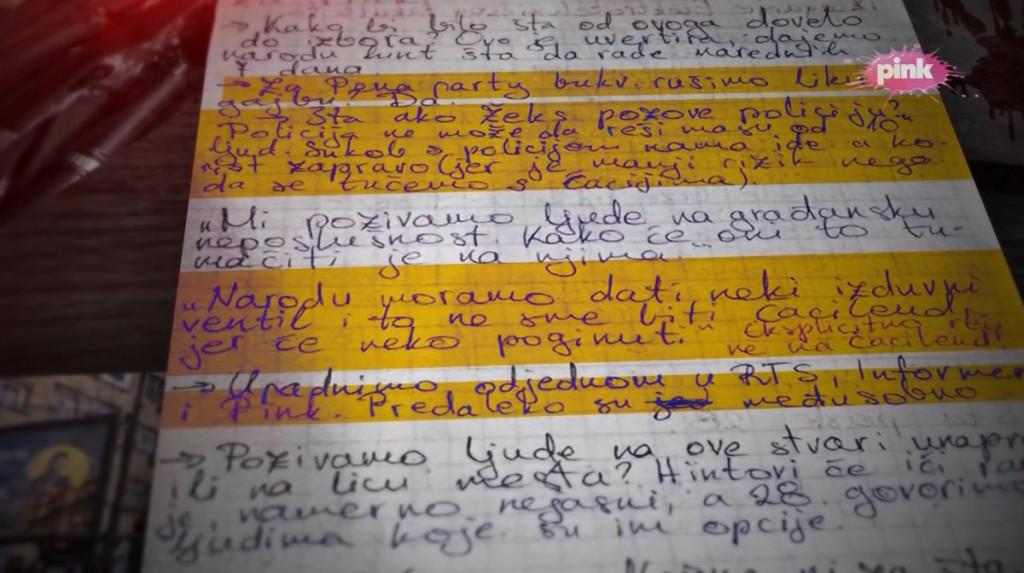 → Kako bi bilo šta od ovoga dovelo
do zbora? Ovo je uvertira, dajemo
narodu hint šta da rade narednih
7 dana.
→ Za party bukv. rušimo
gajbu. Da.
→ Šta ako Žeks pozove policiju?
Policija ne može da reši masu od 10
ljud. Sukob s policijom nama ide u ko-
rist zapravo (jer je manji rizik nego
da se tučemo s Ćacijima).
„Mi pozivamo ljude na građansku
neposlušnost. Kako će oni to tu-
mačiti je na njima.
„Narodu moramo dati neki izduvni
ventil i to ne sme biti Ćacilend,
jer će neko poginuti." Eksplicitno reći
ne na Ćacilend!
→ Upadnimo odjednom u RTS, Informer
i Pink. Predaleko su međusobno
→ Pozivamo ljude na ove stvari unapr
ili na licu mesta? Hintovi će ići
je, namerno nejasni, a 28. govorimo
ljudima koje su im opcije.
pink